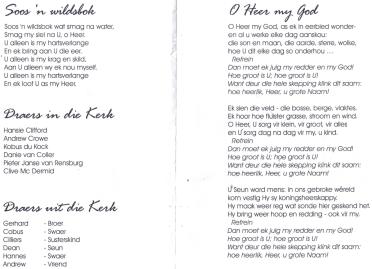 Soos 'n wildsbok
Soos 'n wildsbok wat smag na water,
Smag my siel na U, o Heer.
U alleen is my hartsverlange
En ek bring aan U die eer.
U alleen is my krag en skild,
Aan U alleen wy ek nou myself.
U alleen is my hartsverlange
En ek loof U as my Heer.
Draers in die Kerk
Hansie Clifford
Andrew Crowe
Kobus du Kock
Danie van Coller
Pieter Janse van Rensburg
Clive Mc Dermid
Draers uit die Kerk
Gerhard - Broer
Cobus - Swaer
Cilliers - Susterskind
Dean - Seun
Hannes - Swaer
Andrew - Vriend
O Heer my God
O Heer my God, as ek in eerbied wonder
en al u werke elke dag aanskou:
die son en maan, die aarde, sterre, wolke,
hoe U dit elke dag so onderhou ...
Refrein
Dan moet ek juig my redder en my God!
Hoe groot is U; hoe groot is U!
Want deur die hele skepping klink dit saam:
hoe heerlik, Heer, u grote Naam!
Ek sien die veld - die bosse, berge, vlaktes.
Ek hoor hoe fluister grasse, stroom en wind.
O Heer, U sorg vir klein, vir groot, vir alles
en U sorg dag na dag vir my, u kind.
Refrein
Dan moet ek juig my redder en my God!
Hoe groot is U; hoe groot is U!
Want deur die hele skepping klink dit saam:
hoe heerlik, Heer, u grote Naam!
U Seun word mens: in ons gebroke wêreld
kom vestig Hy sy koningsheerskappy.
Hy maak weer reg wat sonde hier geskend het.
Hy bring weer hoop en redding - ook vir my.
Refrein
Dan moet ek juig my redder en my God!
Hoe groot is U; hoe groot is U!
Want deur die hele skepping klink dit saam:
hoe heerlik, Heer, u grote Naam!